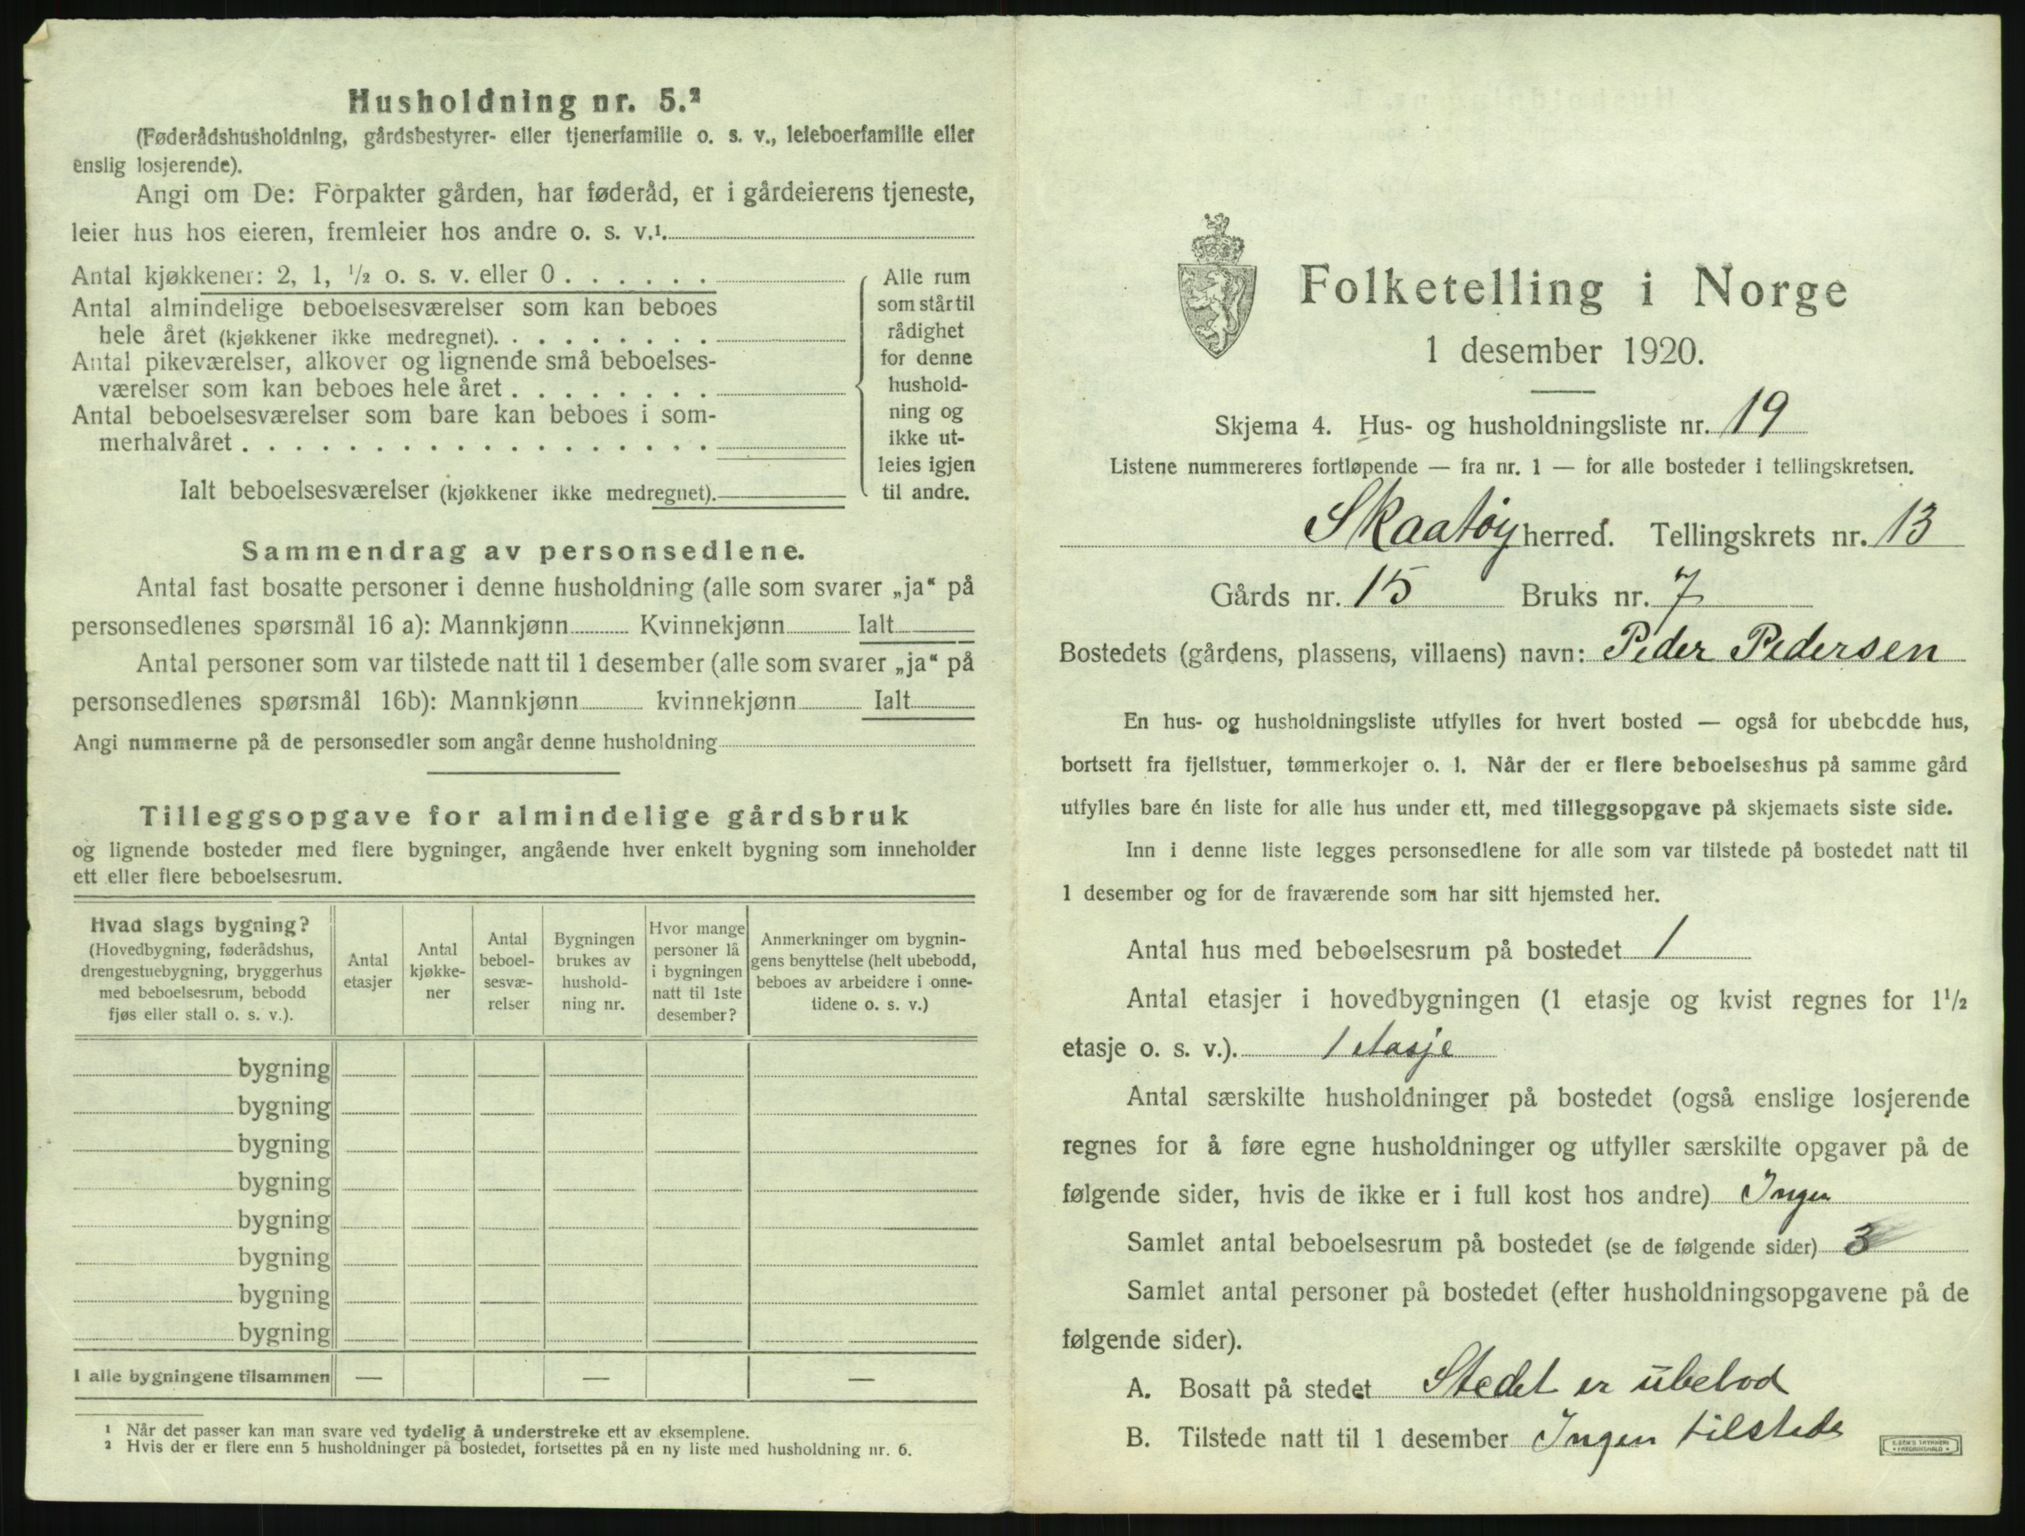 Husholdning nr. 5.²
(Føderådshusholdning, gårdsbestyrer- eller tjenerfamilie o. s. v., leieboerfamilie eller
enslig losjerende).
Angi om De: Forpakter gården, har føderåd, er i gårdeierens tjeneste,
leier hus hos eieren, fremleier hos andre o. s. v.¹.
Antal kjøkkener: 2, 1, ¹/₂ o. s. v. eller 0 . . . . . .
Antal almindelige beboelsesværelser som kan beboes
hele året (kjøkkener ikke medregnet). . . . . . . . .
Antal pikeværelser, alkover og lignende små beboelses-
værelser som kan beboes hele året . . . . . . . .
Antal beboelsesværelser som bare kan beboes i som-
merhalvåret . . . . . . . . . . . . . . . . . .
Ialt beboelsesværelser (kjøkkener ikke medregnet).
Alle rum
som står til
rådighet
for denne
hushold-
ning og
ikke ut-
leies igjen
til andre.
Sammendrag av personsedlene.
Antal fast bosatte personer i denne husholdning (alle som svarer „ja“ på
personsedlenes spørsmål 16 a): Mannkjønn Kvinnekjønn Ialt
Antal personer som var tilstede natt til 1 desember (alle som svarer „ja“ på
personsedlenes spørsmål 16b): Mannkjønn kvinnekjønn Ialt
Angi nummerne på de personsedler som angår denne husholdning
Tilleggsopgave for almindelige gårdsbruk
og lignende bosteder med flere bygninger, angående hver enkelt bygning som inneholder
ett eller flere beboelsesrum.
Hvad slags bygning?
(Hovedbygning, føderådshus,
drengestuebygning, bryggerhus
med beboelsesrum, bebodd
fjøs eller stall o. s. v.).
Antal
etasjer
Antal
kjøkke-
ner
Antal
beboel-
sesvæ-
relser
Bygningen
brukes av
hushold-
ning nr.
Hvor mange
personer lå
i bygningen
natt til 1ste
desember?
Anmerkninger om bygnin-
gens benyttelse (helt ubebodd,
beboes av arbeidere i onne-
tidene o. s. v.)
bygning
bygning
bygning
bygning
bygning
bygning
bygning
bygning
I alle bygningene tilsammen — — —
¹ Når det passer kan man svare ved tydelig å understreke ett av eksemplene.
² Hvis der er flere enn 5 husholdninger på bostedet, fortsettes på en ny liste med husholdning nr. 6.
Folketelling i Norge
1 desember 1920.
Skjema 4. Hus- og husholdningsliste nr. 19
Listene nummereres fortløpende — fra nr. 1 — for alle bosteder i tellingskretsen.
Skaatøy herred. Tellingskrets nr. 13
Gårds nr. 15 Bruks nr. 7
Bostedets (gårdens, plassens, villaens) navn: Peder Pedersen
En hus- og husholdningsliste utfylles for hvert bosted — også for ubebodde hus,
bortsett fra fjellstuer, tømmerkojer o. l. Når der er flere beboelseshus på samme gård
utfylles bare én liste for alle hus under ett, med tilleggsopgave på skjemaets siste side.
Inn i denne liste legges personsedlene for alle som var tilstede på bostedet natt til
1 desember og for de fraværende som har sitt hjemsted her.
Antal hus med beboelsesrum på bostedet 1
Antal etasjer i hovedbygningen (1 etasje og kvist regnes for 1¹/₂
etasje o. s. v.). 1 etasje
Antal særskilte husholdninger på bostedet (også enslige losjerende
regnes for å føre egne husholdninger og utfyller særskilte opgaver på de
følgende sider, hvis de ikke er i full kost hos andre) Ingen
Samlet antal beboelsesrum på bostedet (se de følgende sider) 3
Samlet antal personer på bostedet (efter husholdningsopgavene på de
følgende sider).
A. Bosatt på stedet Stedet er ubebod
B. Tilstede natt til 1 desember Ingen tilstede